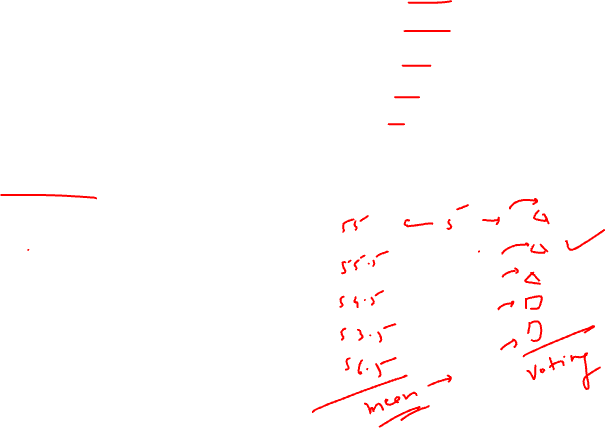 55 ← 5 → → △
55.5 → △ ✓
54.5 → △
53.5 → □
56.5 → □
mean → voting